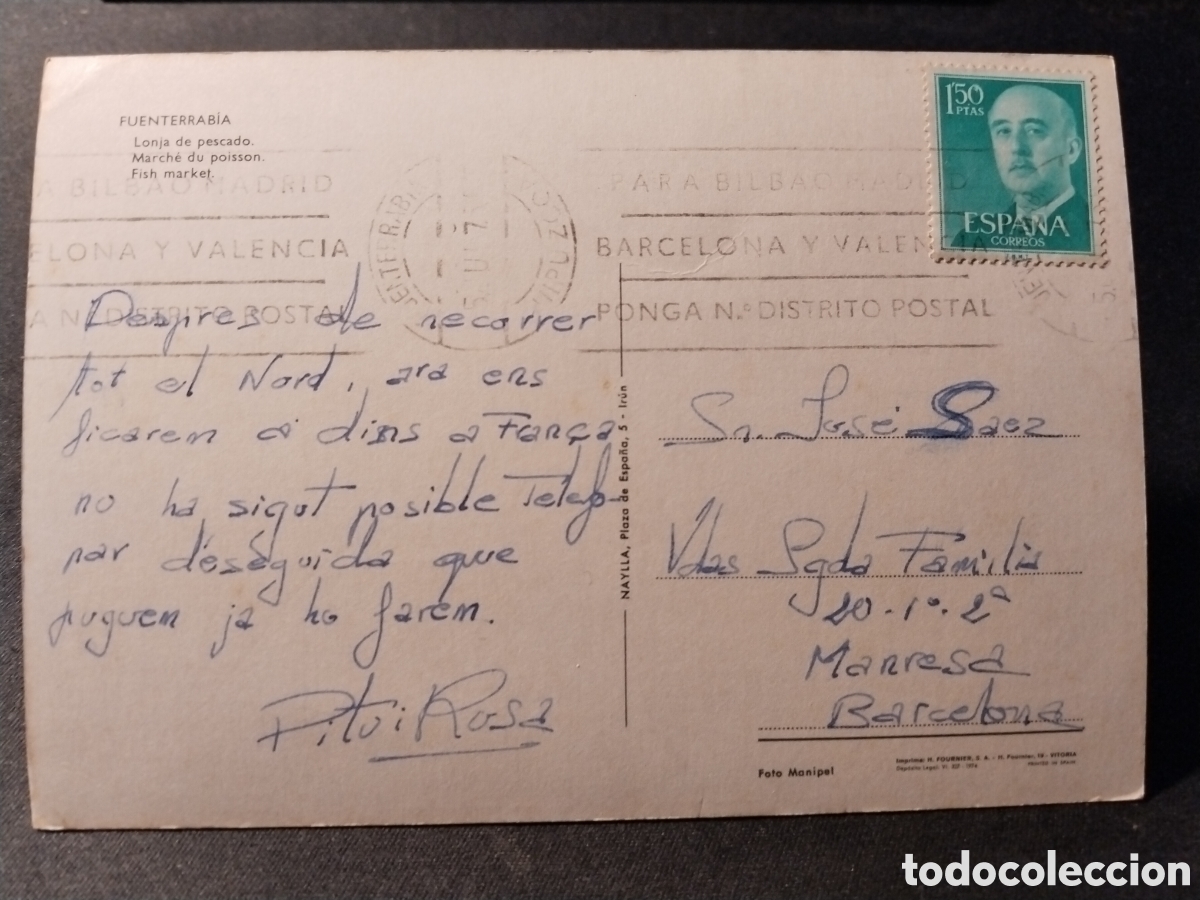 FUENTERRABÍA
Lonja de pescado.
Marché du poisson.
Fish market.
1'50
PTAS
ESPAÑA
CORREOS
A BILBAO MADRID
ELONA Y VALENCIA
A N.º DISTRITO POSTAL
PARA BILBAO MADRID
BARCELONA Y VALENCIA
PONGA N.º DISTRITO POSTAL
Despres de recorrer
tot el Nord, ara ens
ficarem a dins a França
no ha sigut posible Telefo-
nar deseguida que
puguem ja ho farem.
Pitu i Rosa
NAYLLA, Plaza de España, 5 - Irún
Sr. José Saez
Vdas Sgda Familia
20-1º-2ª
Manresa
Barcelona
Foto Manipel
Imprime: H. FOURNIER, S. A. - H. Fournier, 19 - VITORIA
todocoleccion